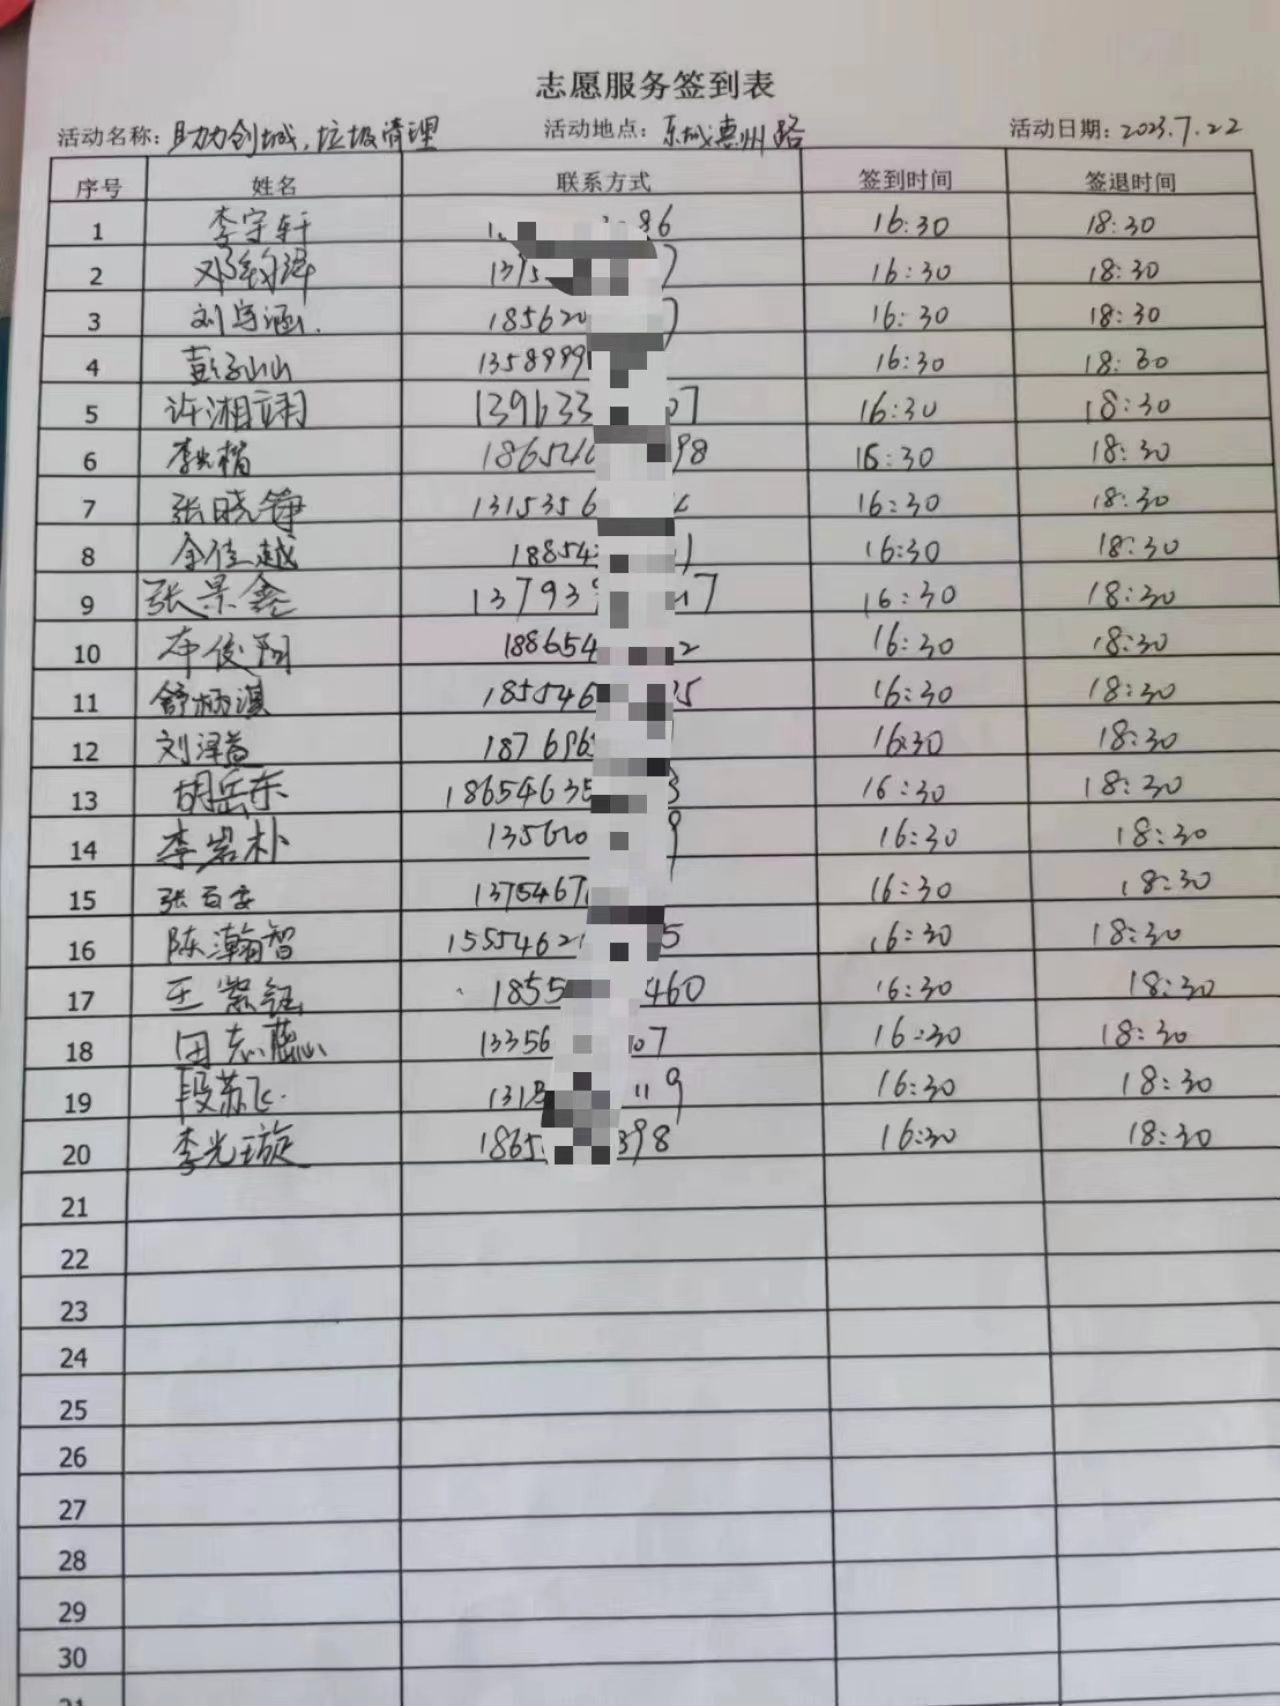 志愿服务签到表
活动名称：助力创城，垃圾清理 活动地点：东城惠州路 活动日期：2023.7.22
序号 姓名 联系方式 签到时间 签退时间
1 李宇轩 86 16:30 18:30
2 邓钧泽 1395 7 16:30 18:30
3 刘宇涵. 185620 7 16:30 18:30
4 彭子山山 1358999 16:30 18:30
5 许湘翊 139633 07 16:30 18:30
6 李光楷 186546 98 16:30 18:30
7 张晓铮 1315356 16:30 18:30
8 余佳越 18854 1 16:30 18:30
9 张景鑫 13793 17 16:30 18:30
10 俊翔 188654 2 16:30 18:30
11 舒柄淇 185546 5 16:30 18:30
12 刘泽益 187696 16:30 18:30
13 胡岳东 18654635 3 16:30 18:30
14 李岩朴 135620 9 16:30 18:30
15 张百委 1375467 16:30 18:30
16 陈瀚智 1555462 5 16:30 18:30
17 王紫钰 1855 460 16:30 18:30
18 田志蕊 13356 07 16:30 18:30
19 段苏飞. 1318 119 16:30 18:30
20 李光璇 1865 398 16:30 18:30
21
22
23
24
25
26
27
28
29
30